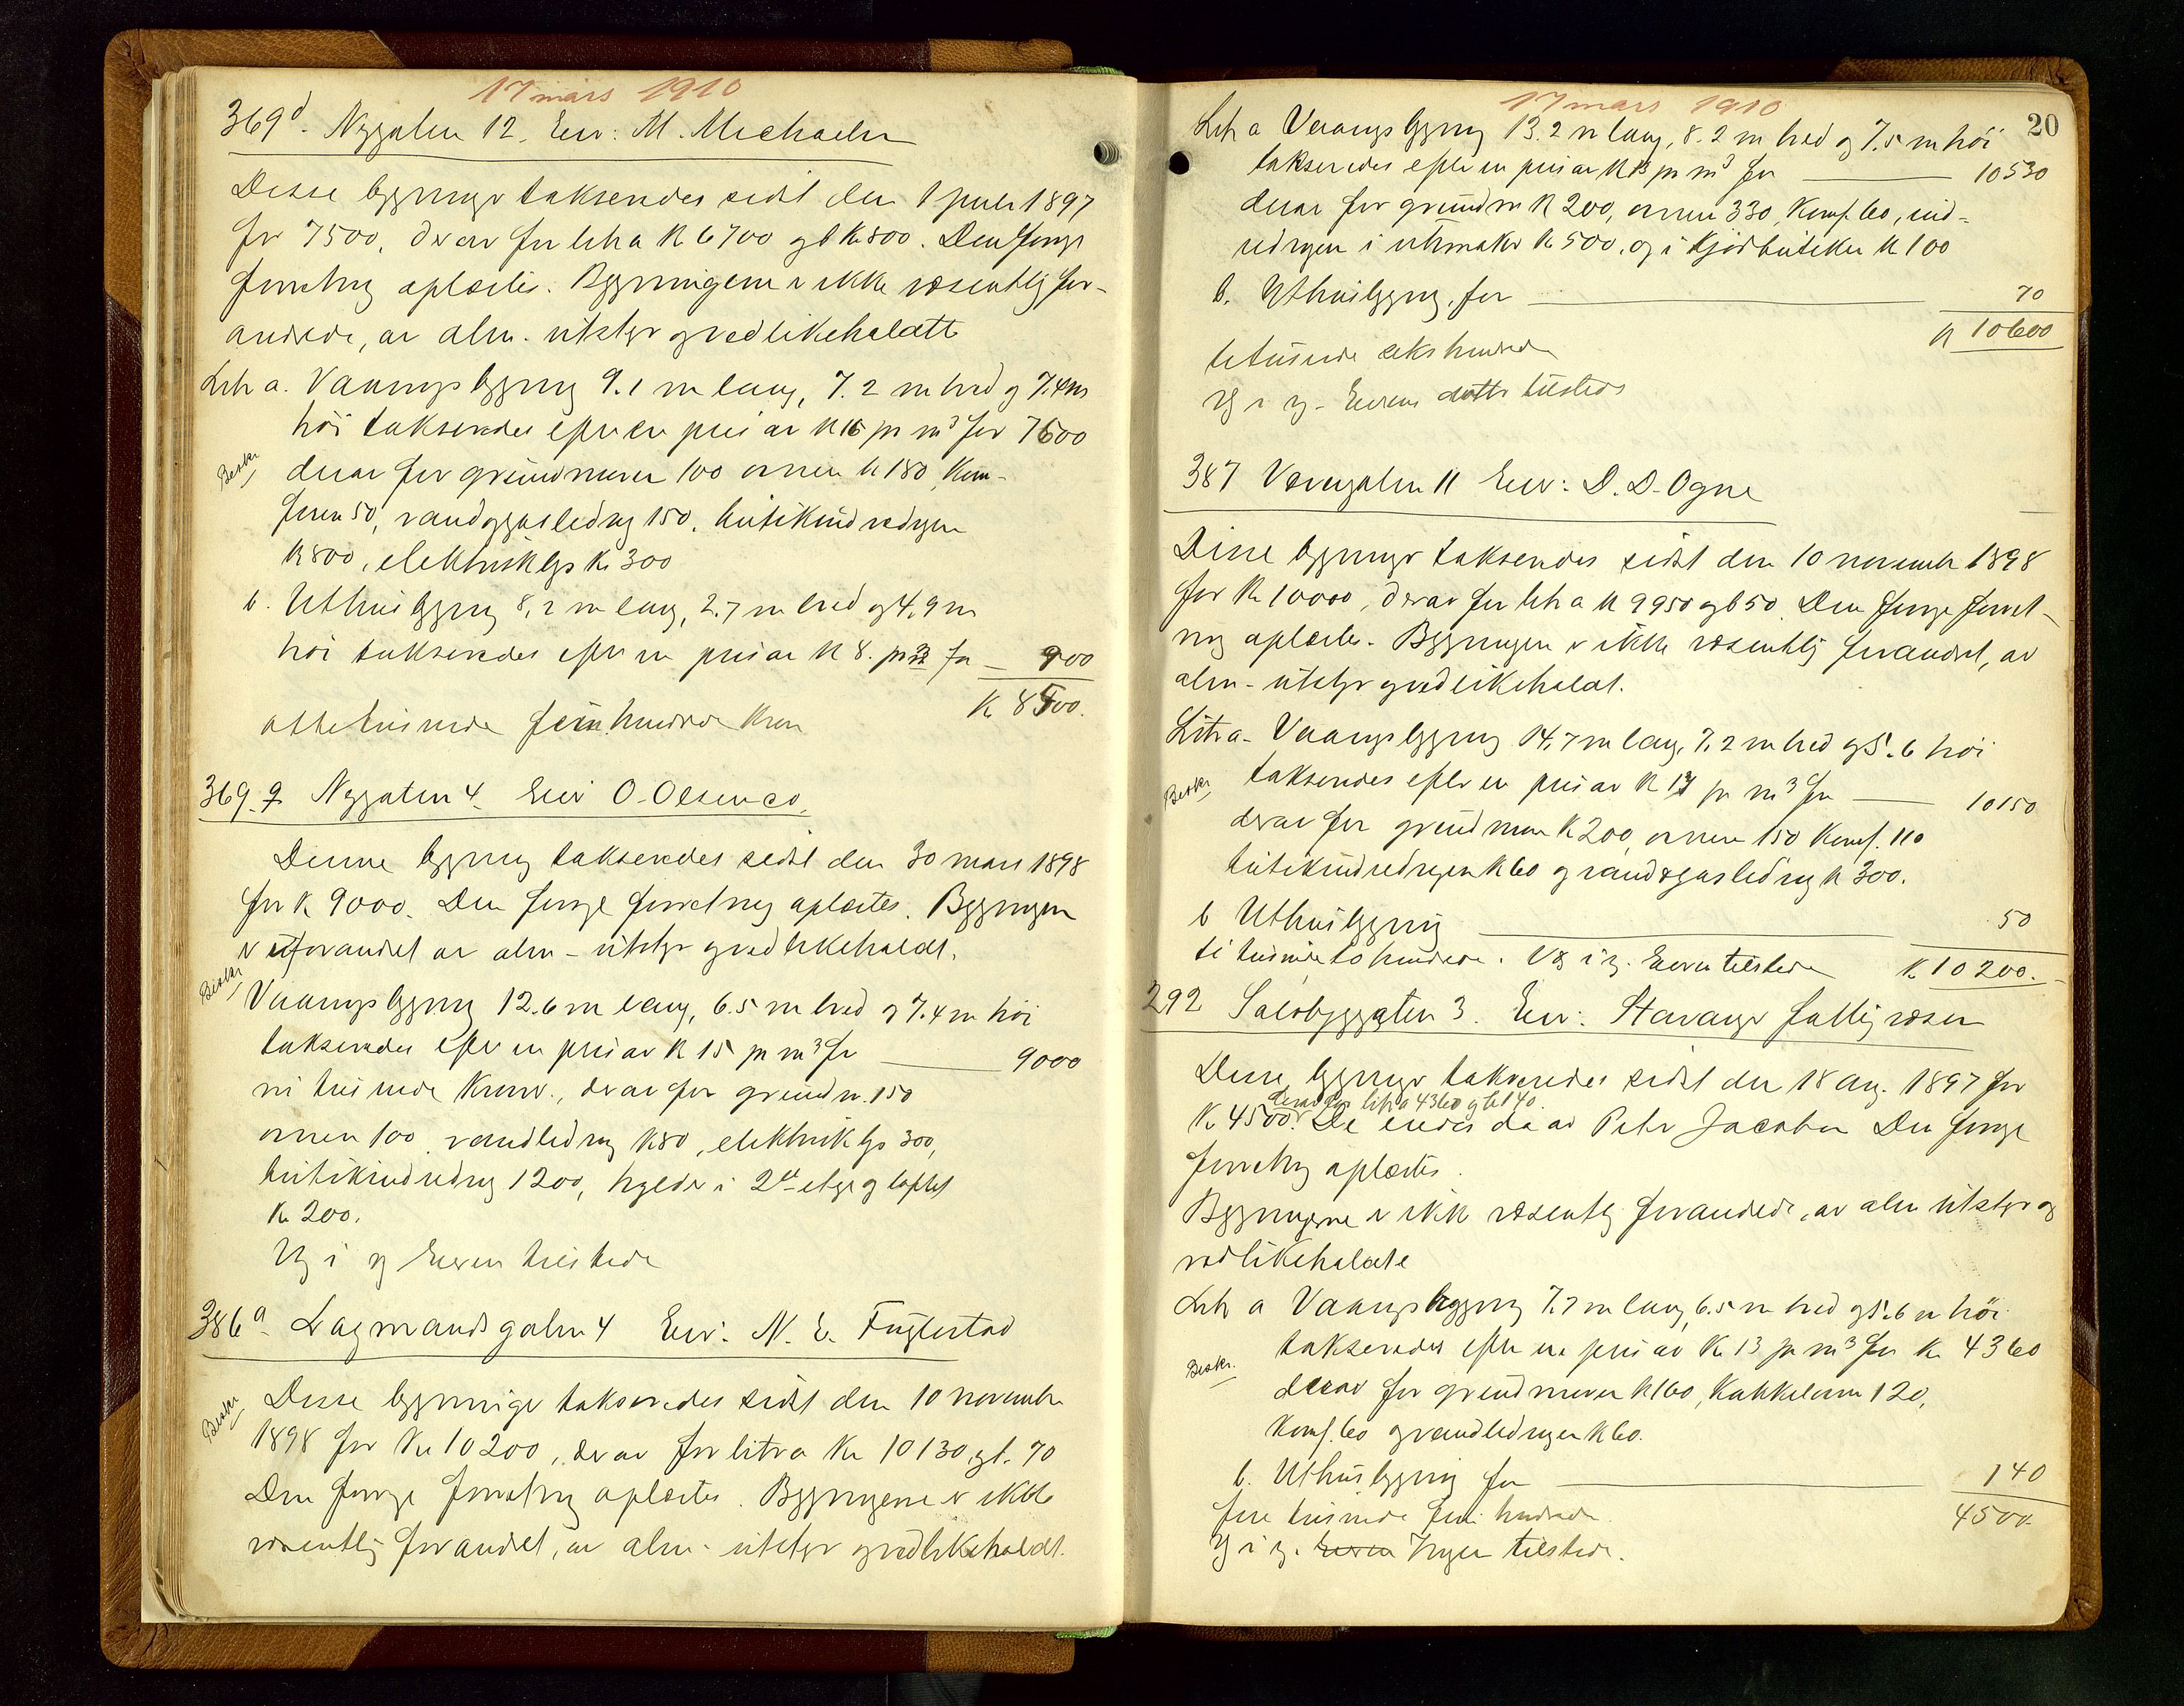 17 mars 1910
369d. Nygaten 12. Eier: M. Michaelsen
Disse bygninger taksertes sidst den 1 juli 1897
for 7500, derav for litra a K 6700 og b K 800. Den forrige
forretning oplæstes. Bygningene er ikke væsentlig for-
andrede, av alm. utstyr og vedlikeholdt
Litr a. Vaaningsbygning 9.1 m lang, 7.2 m bred og 7.4 m
høi takseredes efter en pris av K 16 pr m³ for 7600
Beskr. derav for grundmuren 100 ovnen K 180, Kom-
furen 50, vand og gasledning 150, butikindredningen
K 800, elektrisk lys K 300
b. Uthusbygning 8,2 m lang, 2.7 m bred og 4,9 m
høi takseredes efter en pris av K 8. pr m³ for — 900
K 8500.
otte tusinde fem hundrede kroner
369.g Nygaten 4. Eier O. Olsen co.
Denne bygning takseredes sidst den 30 mars 1898
for K 9000. Den forrige forretning oplæstes. Bygningen
er uforandret av alm. utstyr og vedlikeholdt.
Beskr Vaaningsbygning 12.6 m lang, 6.5 m bred og 7.4 m høi
takseredes efter en pris av K 15 pr m³ for — 9000
ni tusinde kroner, derav for grundm. 150
ovnen 100, vandledning K 80, elektrisk lys 300,
butikindredning 1200, hylder i 2de etage og loftet
K 200.
Vg i g Eieren tilstede
386a. Lagmandsgaten 4 Eier: N. E. Fuglestad
Beskr Disse bygninger takseredes sidst den 10 november
1898 for Kr 10200, derav for litra Kr 10130, og b. 70
Den forrige forretning oplæstes. Bygningene er ikke
væsentlig forandret, av alm. utstyr og vedlikeholdt.
17 mars 1910
20
Litr a Vaaningsbygning 13.2 m lang, 8.2 m bred og 7.5 m høi
takseredes efter en pris av K 13 pr m³ for — 10530
derav for grundm K 200, ovnen 330, Komf. 60, ind-
redningen i K 500, og i Kjødbutiken K 100
b. Uthusbygning, for — 70
K 10600
titusinde seks hundrede
Vg i g. Eierens datter tilstede
387 Vævergaten 11 Eier: D. D. Ogne
Disse bygninger takseredes sidst den 10 november 1898
for Kr 10000, derav for litr a K 9950 og b 50. Den forrige forret-
ning oplæstes. Bygningen er ikke væsentlig forandret, av
alm. utstyr og vedlikeholdt.
Litr a. Vaaningsbygning 14,7 m lang, 7,2 m bred og 5.6 høi
Beskr takseredes efter en pris av K 17 pr m³ for — 10150
derav for grundmur K 200, ovnen 150 Komf. 110
butikindredningen K 60 og vand & gasledning K 300.
b Uthusbygning — 50
ti tusinde to hundrede. Vg i g. Eieren tilstede K 10200.
292 Salvbyggaten 3. Eier: Stavanger fattigvæsen
Disse bygninger takseredes sidst den 18 aug. 1897 for
derav for litr a 4360 og b 140.
K 4500. De eiedes da av Peter Jacobsen Den forrige
forretning oplæstes.
Bygningerne er ikke væsentlig forandrede, av alm utstyr og
vedlikeholdte
Litr a Vaaningsbygning 7.7 m lang, 6.5 m bred og 5.6 m høi
takseredes efter en pris av K 13 pr m³ for K 4360
Beskr. derav for grundmuren K 160, Kakkelovn 120,
Komf. 60 og vandledningen K 60.
b. Uthusbygning for — 140
4500
fire tusinde fem hundrede
Vg i g. Eieren Ingen tilstede.